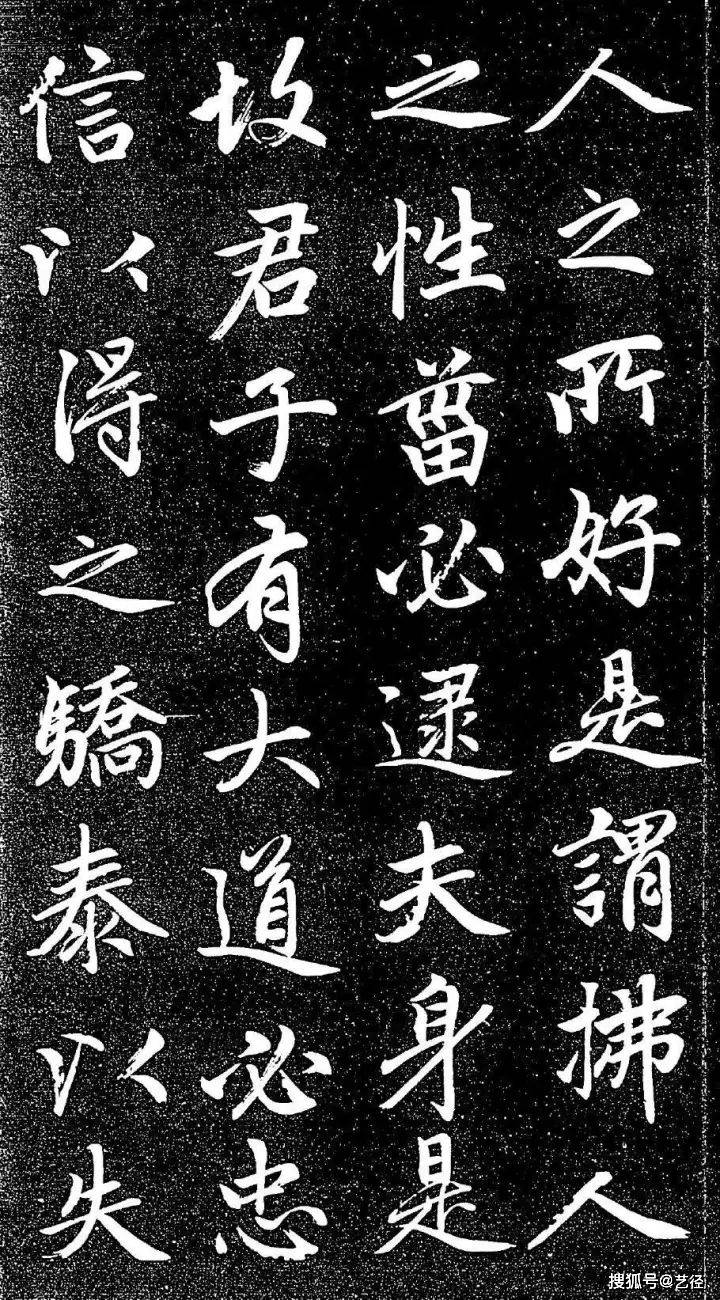 人之所好是謂拂人
之性菑必逮夫身是
故君子有大道必忠
信以得之驕泰以失
搜狐号@艺径